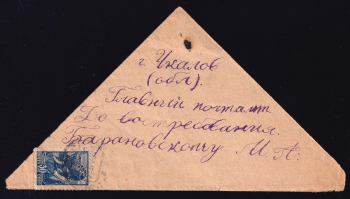 г. Чкалов
(обл).
Главный почтамт
До востребования.
Барановскому И. П.